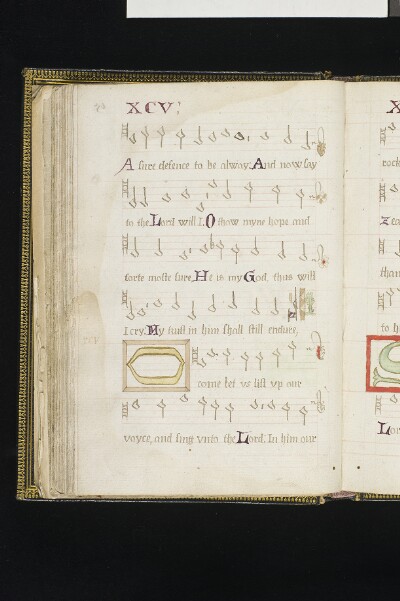 XCV.
A sure defence to be alway. And now say
to the Lord will I, O thow myne hope and
forte moste sure, He is my God, thus will
I cry. My trust in him shall still endure,
O come let vs lift vp our
voyce, and sing vnto the Lord. In him our
X
rock
to
Lor